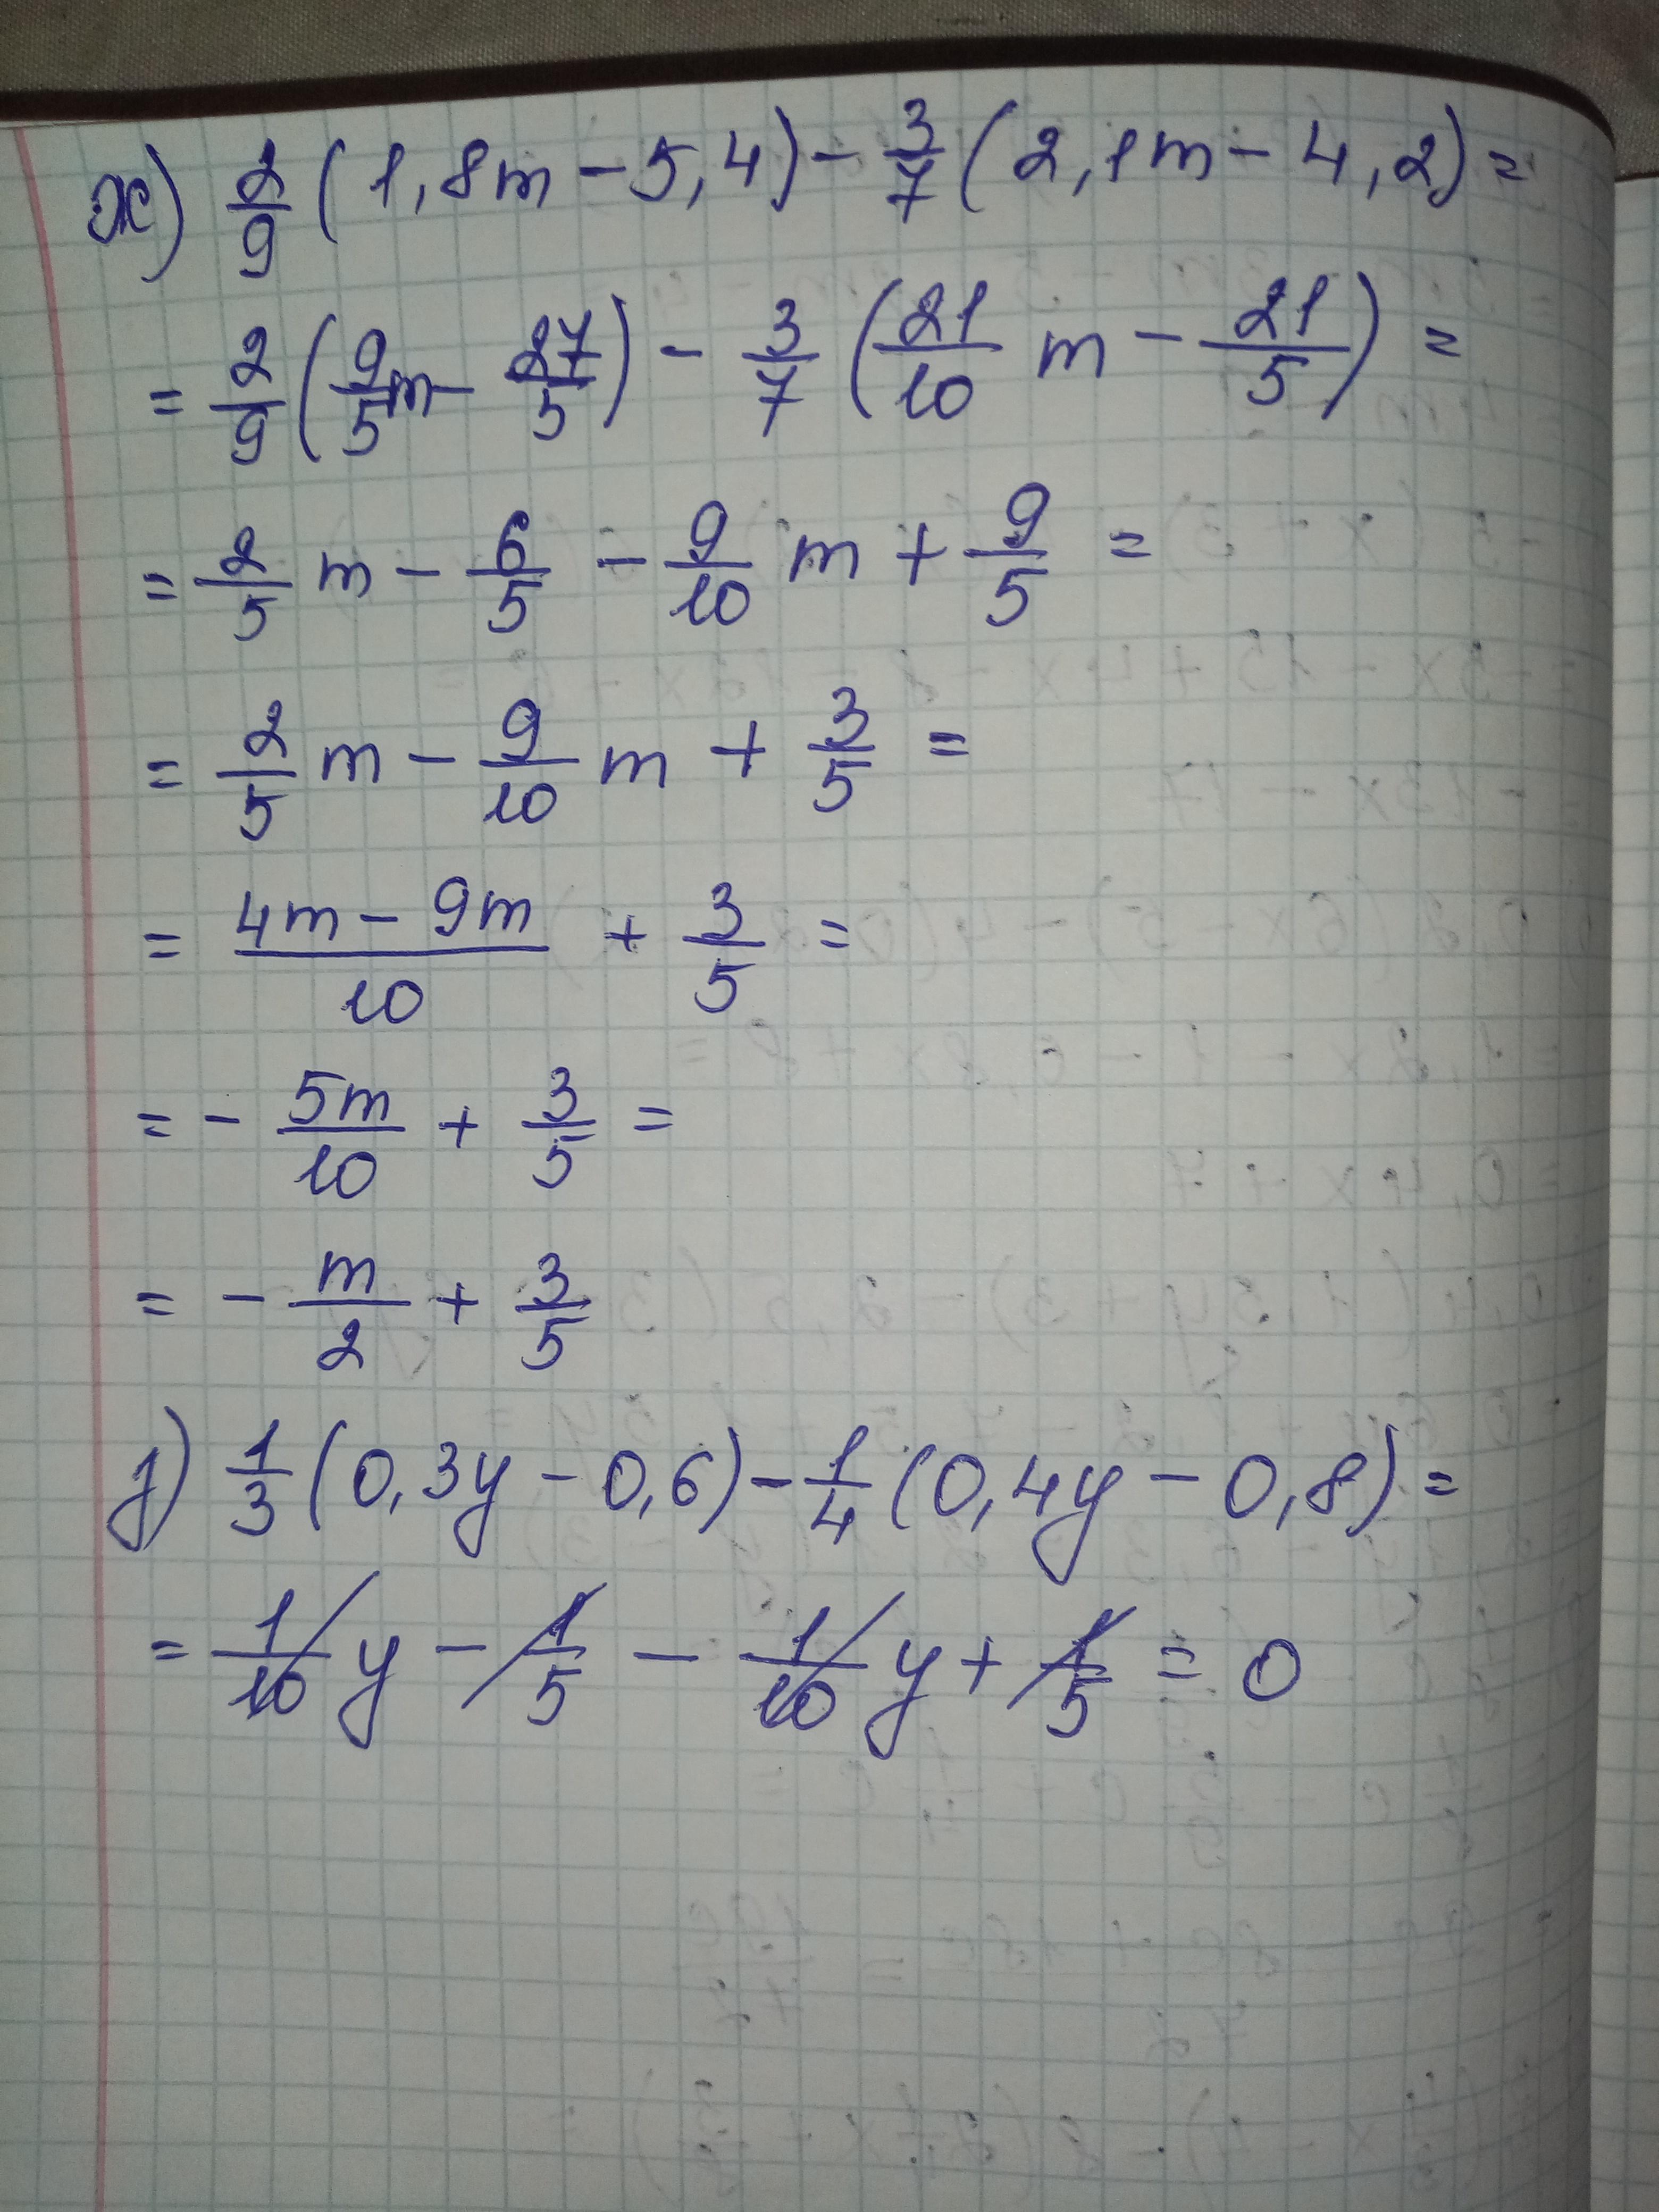 ж) 2/9 (1,8m - 5,4) - 3/7 (2,1m - 4,2) =
= 2/9 (9/5 m - 27/5) - 3/7 (21/10 m - 21/5) =
= 2/5 m - 6/5 - 9/10 m + 9/5 =
= 2/5 m - 9/10 m + 3/5 =
= (4m - 9m)/10 + 3/5 =
= - 5m/10 + 3/5 =
= - m/2 + 3/5
з) 1/3 (0,3y - 0,6) - 1/4 (0,4y - 0,8) =
= 1/10 y - 1/5 - 1/10 y + 1/5 = 0